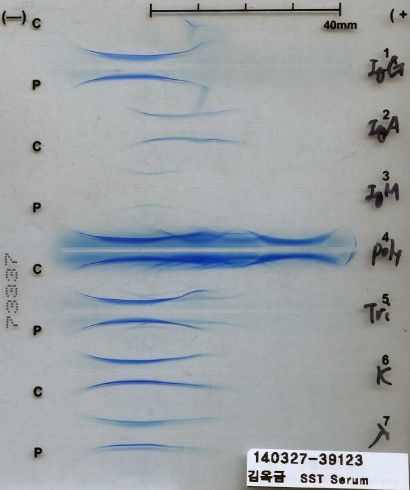 (—) C
40mm
( +
1
IgG
P
2
IgA
C
3
IgM
P
4
poly
C
5
Tri
P
6
K
C
7
λ
P
73337
140327-39123
김옥금 SST Serum